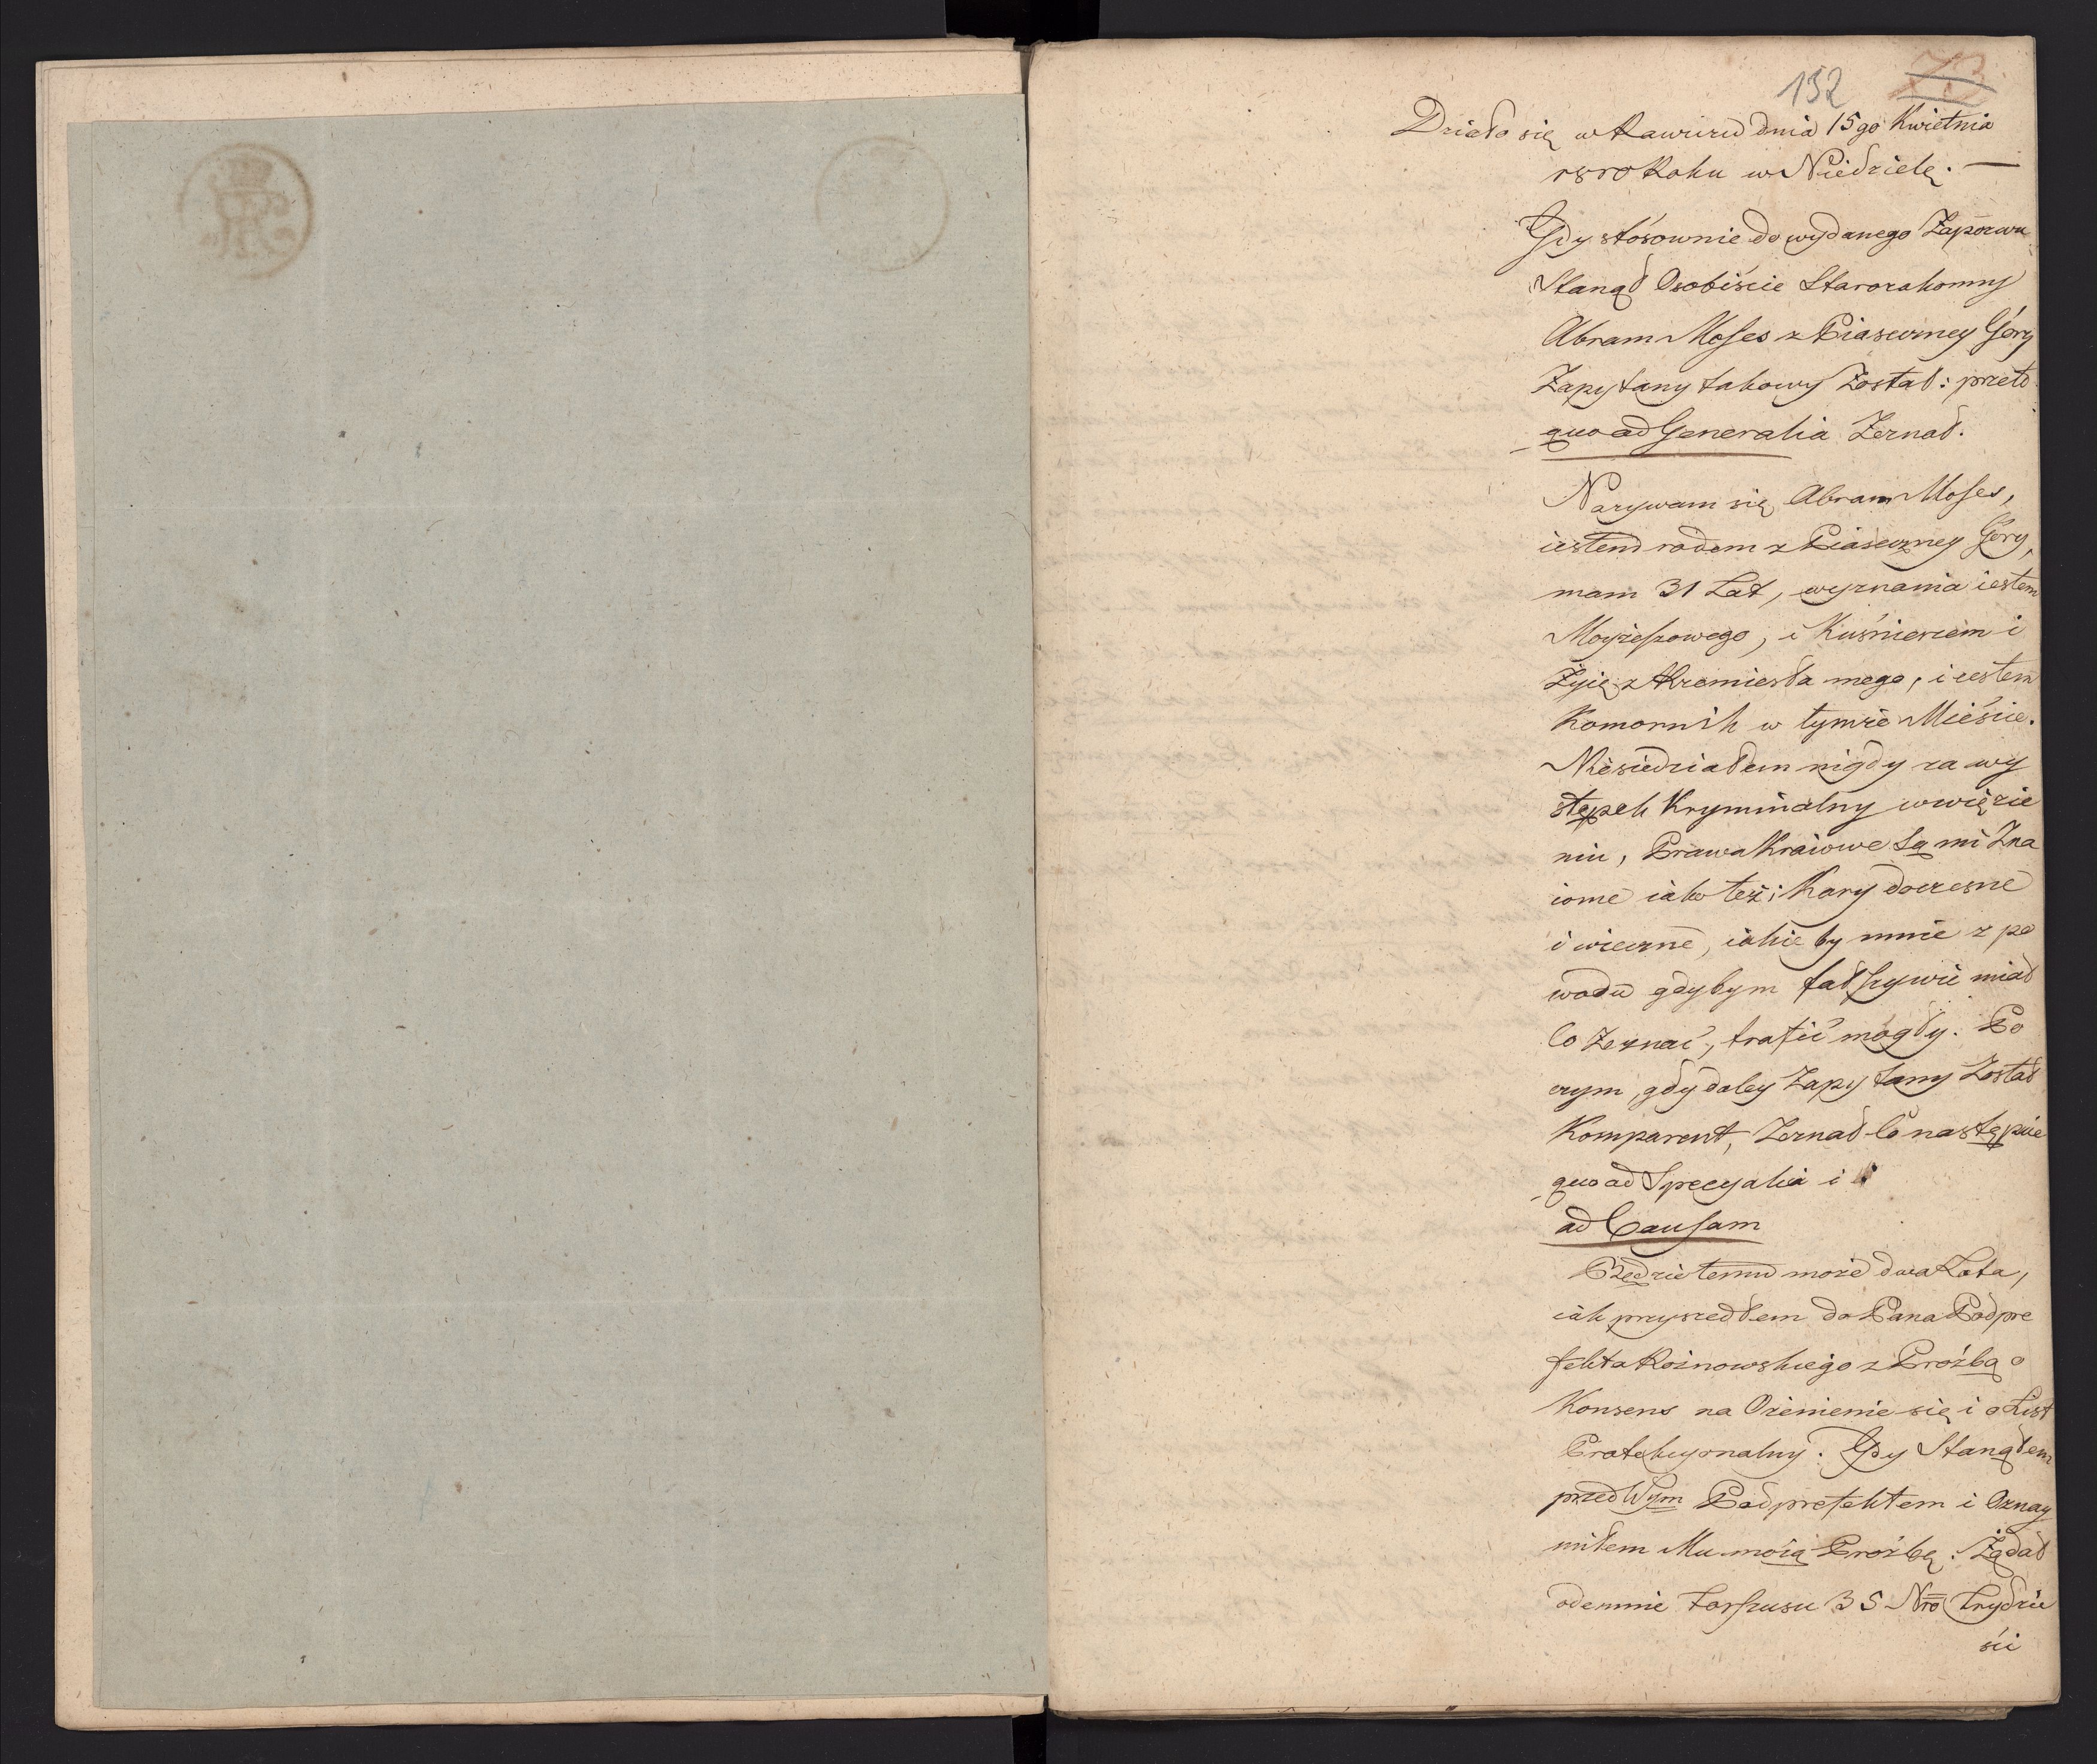 132 73
Działo się w Rawiczu dnia 15go Kwietnia
1810 Roku w Niedzielę. —
Gdy stósownie do wydanego Zapozwu
Stanął Osobiście Starozakonny
Abram Moſes z Piaseczney Góry
Zapytany takowy Został: przeto
quo ad Generalia Zeznał.
Nazywam się Abram Moſes,
iestem rodem z Piaseczney Góry,
mam 31 Lat, wyznania iestem
Moyżeſzowego, i Kuśnierzem i
Żyię z Rzemiesła mego, i iestem
Komornik w tymże Mieście.
Niesiedziałem nigdy za wy
stępek Kryminalny w więzie
niu, Prawa Kraiowe Są mi Zna
iome iako też i Kary doczesne
i wieczne, iakie by mnie z po
wodu gdybym fałſzywie miał
Co Zeznać, trafić mogły. Po
czym, gdy daley Zapytany Został
Komparent, Zeznał Co następuie
quo ad Specyalia i
ad Cauſam
Będzie temu może dwa Lata,
iak przyszedłem do Pana Podpre
fekta Rożnowskiego z Prożbą o
Konsens na Ożenienie się i o List
Protekcyonalny. Gdy Stanąłem
przed Wym Podprefektem i Oznay
miłem Mu moię Prożbę. Żądał
odemnie Forſzusu 35 Nro trzydzie
ści